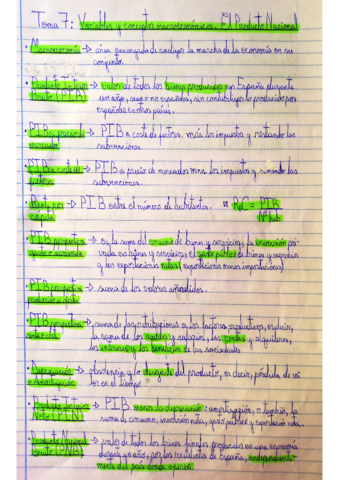 Tema 7: Variables y conceptos macroeconómicos. El Producto Nacional
• Macroeconomía → área encargada de analizar la marcha de la economía en su
conjunto.
• Producto Interior → valor de todos los bienes producidos en España durante
Bruto (PIB) un año, sean o no españoles, sin contabilizar lo producido por
españoles en otros países.
• PIB a precio de → PIB a coste de factores más los impuestos y restando las
mercado subvenciones.
• PIB a coste de → PIB a precio de mercados menos los impuestos y sumando las
factores subvenciones.
• Renta per → PIB entre el número de habitantes. = PIB
cápita Nº hab
• PIB → es la suma del consumo de bienes y servicios, la inversión pri-
gasto o vada en bienes y servicios, el gasto público de bienes y servicios
y las exportaciones netas (exportaciones menos importaciones)
• PIB → suma de los valores añadidos.
• PIB → suma de las retribuciones a los factores productivos, es decir,
la suma de los sueldos y salarios, las rentas y alquileres,
los intereses y los beneficios de las sociedades.
• Depreciación → obsolescencia y/o desgaste del producto, es decir, pérdida de va-
o amortización lor en el tiempo.
• Producto Interior → PIB menos la depreciación: amortización, o sea, la
Neto (PIN) suma de consumo, inversión neta, gasto público y exportación neta.
• Producto Nacional → valor de todos los bienes finales producidos en una economía
Bruto (PNB) durante un año, por los residentes de España, independiente-
mente del país donde operen.